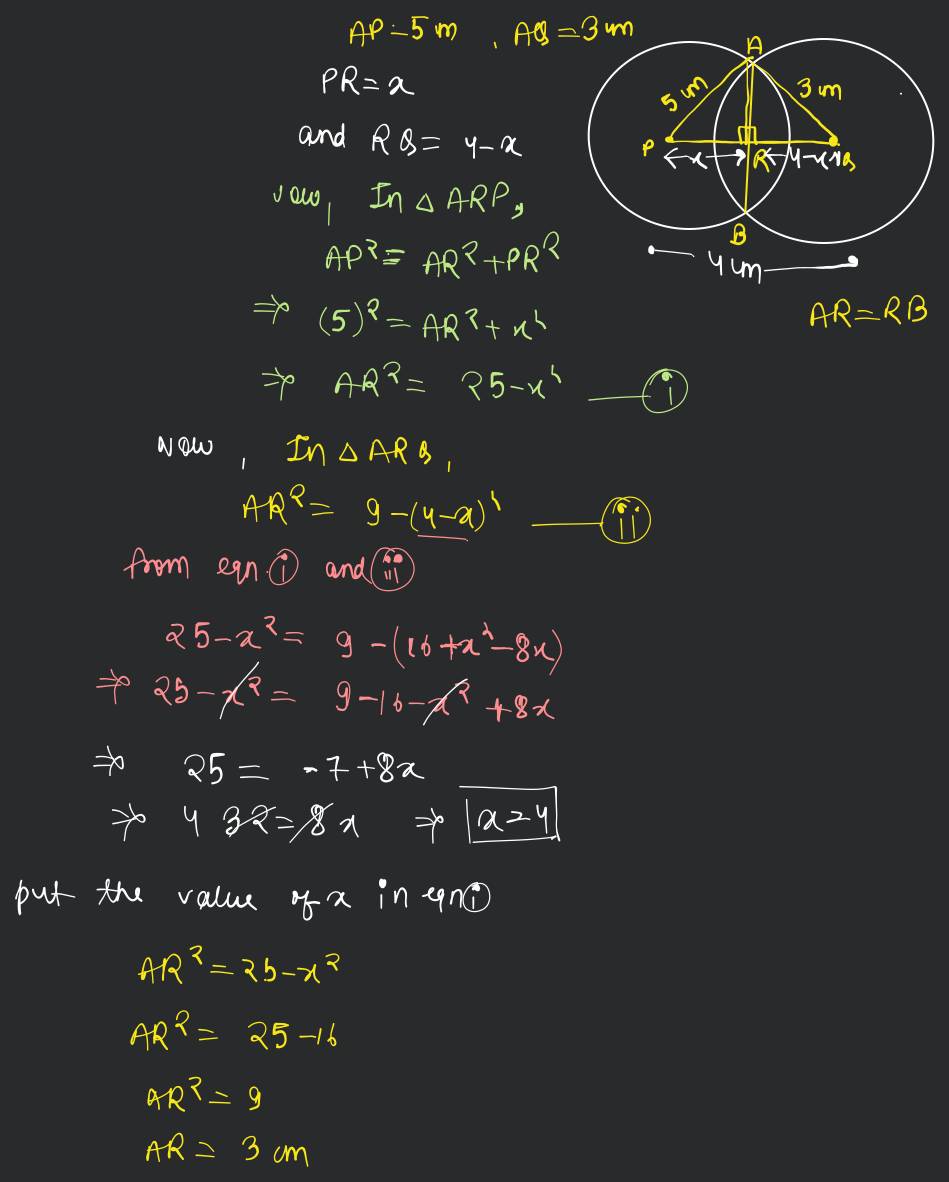 AP = 5 cm , AQ = 3 cm
PR = x
and RQ = 4-x
Now, In △ ARP,
AP² = AR² + PR²
⇒ (5)² = AR² + x²
⇒ AR² = 25-x² — (i)
A
5 cm
3 cm
P
R
Q
←x→
←4-x→
B
4 cm
AR = RB
Now, In △ ARQ,
AR² = 9-(4-x)² — (ii)
from eqn (i) and (ii)
25-x² = 9-(16+x²-8x)
⇒ 25-x² = 9-16-x²+8x
⇒ 25 = -7+8x
⇒ 4 32 = 8x ⇒ x=4
put the value of x in eqn (i)
AR² = 25-x²
AR² = 25-16
AR² = 9
AR = 3 cm